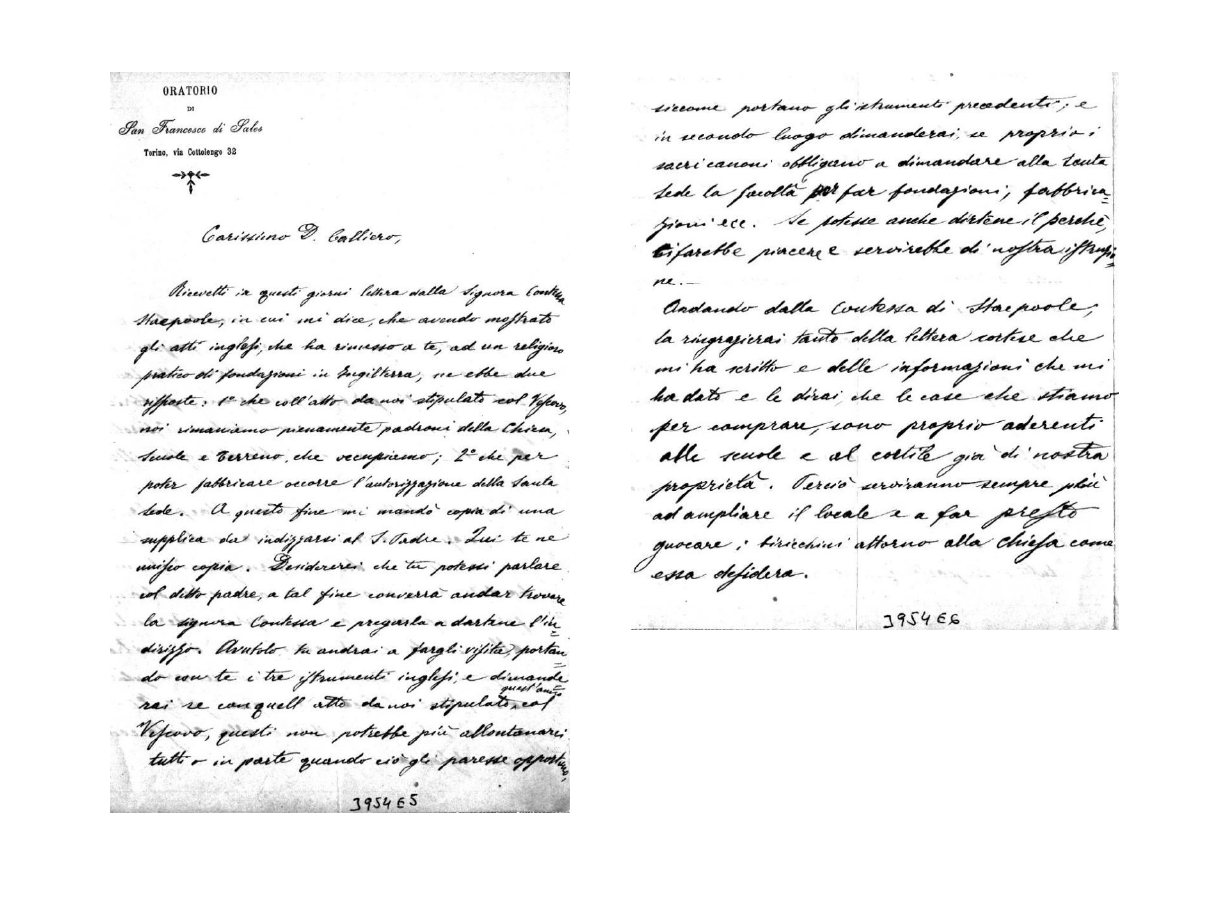 ORATORIO
DI
San Francesco di Sales
Torino, via Cottolengo 32
Carissimo D. Calliero,
Ricevetti in questi giorni lettera dalla Signora Contessa
Stacpoole, in cui mi dice, che avendo mostrato
gli atti inglesi, che ha rimesso a te, ad un religioso
pratico di fondazioni in Ingilterra, ne ebbe due
risposte: 1º che coll'atto da noi stipulato col Vescovo,
noi rimaniamo pienamente padroni della Chiesa,
Scuole e Terreno, che occupiamo; 2º che per
poter fabbricare occorre l'autorizzazione della Santa
Sede. A questo fine mi mandò copia di una
supplica da indizzarsi al S. Padre. Qui te ne
unisco copia. Desidererei che tu potessi parlare
col detto padre, a tal fine converrà andar trovare
la signora Contessa e pregarla a dartene l'in=
dirizzo. Avutolo tu andrai a fargli visita, portan=
do con te i tre istrumenti inglesi, e dimande
rai se con quell'atto da noi stipulato quest'anno col
Vescovo, questi non potrebbe più allontanarci
tutti o in parte quando ciò gli paresse opportuno,
3954E5
siccome portano gli istrumenti precedenti; e
in secondo luogo dimanderai, se proprio i
sacri canoni obbligano a dimandare alla Santa
Sede la facoltà per far fondazioni, fabbrica=
zioni ecc. Se potesse anche dirtene il perchè,
ci farebbe piacere e servirebbe di nostra istruzio=
ne.—
Andando dalla Contessa di Stacpoole,
la ringrazierai tanto della lettera cortese che
mi ha scritto e delle informazioni che mi
ha dato e le dirai, che le case che stiamo
per comprare, sono proprio aderenti
alle scuole e al cortile già di nostra
proprietà. Perciò serviranno sempre più
ad ampliare il locale e a far presto
guocare i biricchini attorno alla Chiesa come
essa desidera.
3954E6